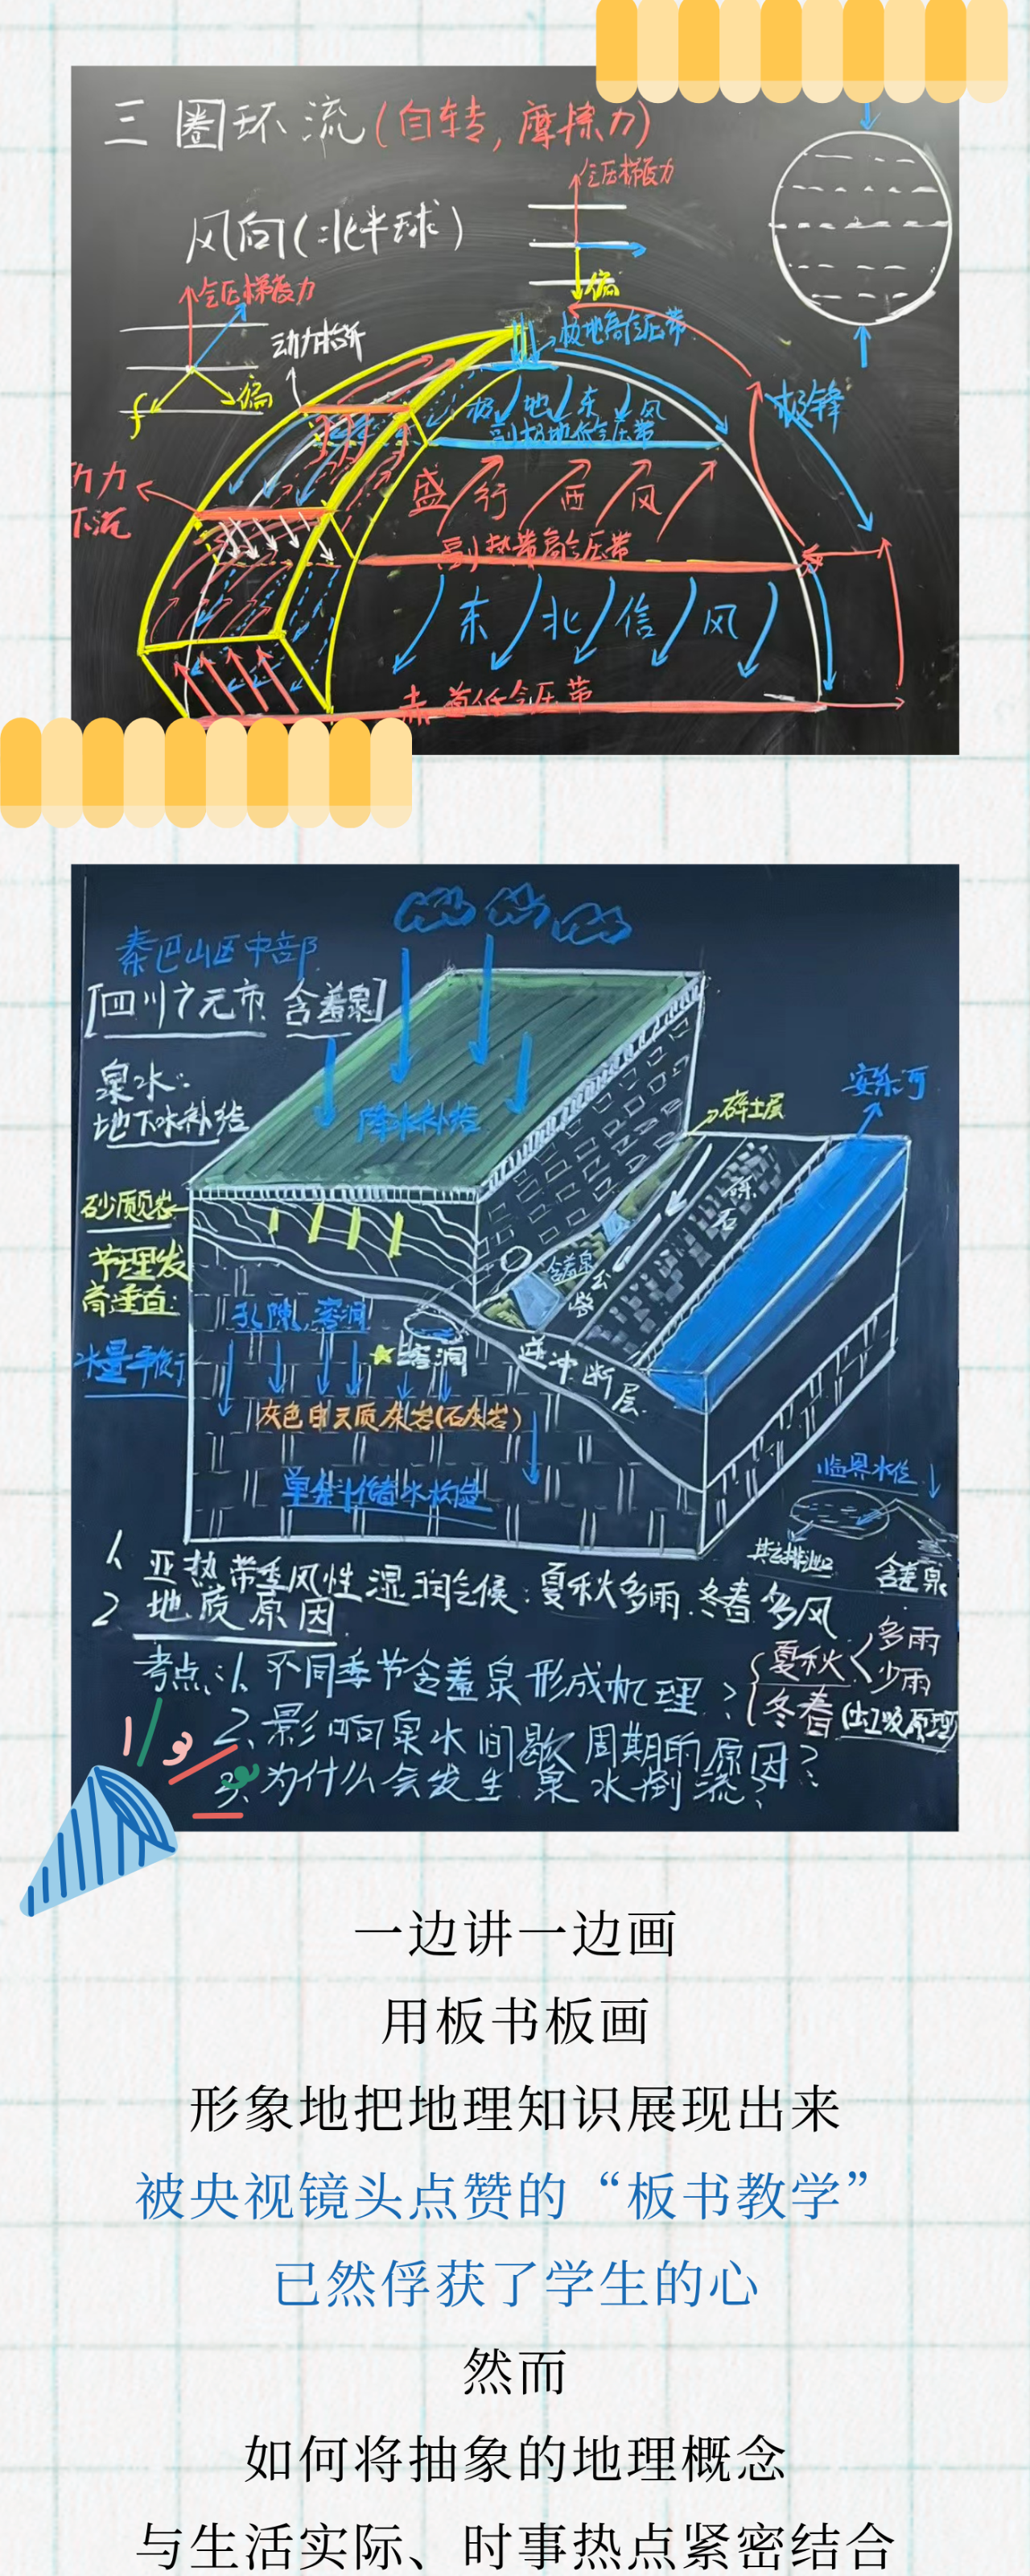 三圈环流(自转,摩擦力)
气压梯度力
风向(北半球)
偏
气压梯度力
动力抬升
极地高气压带
偏
f
极地东风
极锋
副极地低气压带
盛行西风
动力
下沉
副热带高气压带
东北信风
赤道低气压带
秦巴山区中部
[四川广元市 含羞泉]
泉水:
地下水补给
降水补给
安乐河
碎土层
砾石
砂质页岩
节理发
育垂直
含羞泉
公路
孔隙、溶洞
水量平衡
溶洞
逆冲断层
灰色白云质灰岩(石灰岩)
单斜储水构造
临界水位
其它排泄口
含羞泉
1、亚热带季风性湿润气候:夏秋多雨.冬春多风
2、地质原因
考点:1、不同季节含羞泉形成机理?
夏秋
多雨
少雨
冬春(虹吸原理)
2、影响泉水间歇周期的原因?
3、为什么会发生泉水倒流?
一边讲一边画
用板书板画
形象地把地理知识展现出来
被央视镜头点赞的“板书教学”
已然俘获了学生的心
然而
如何将抽象的地理概念
与生活实际、时事热点紧密结合